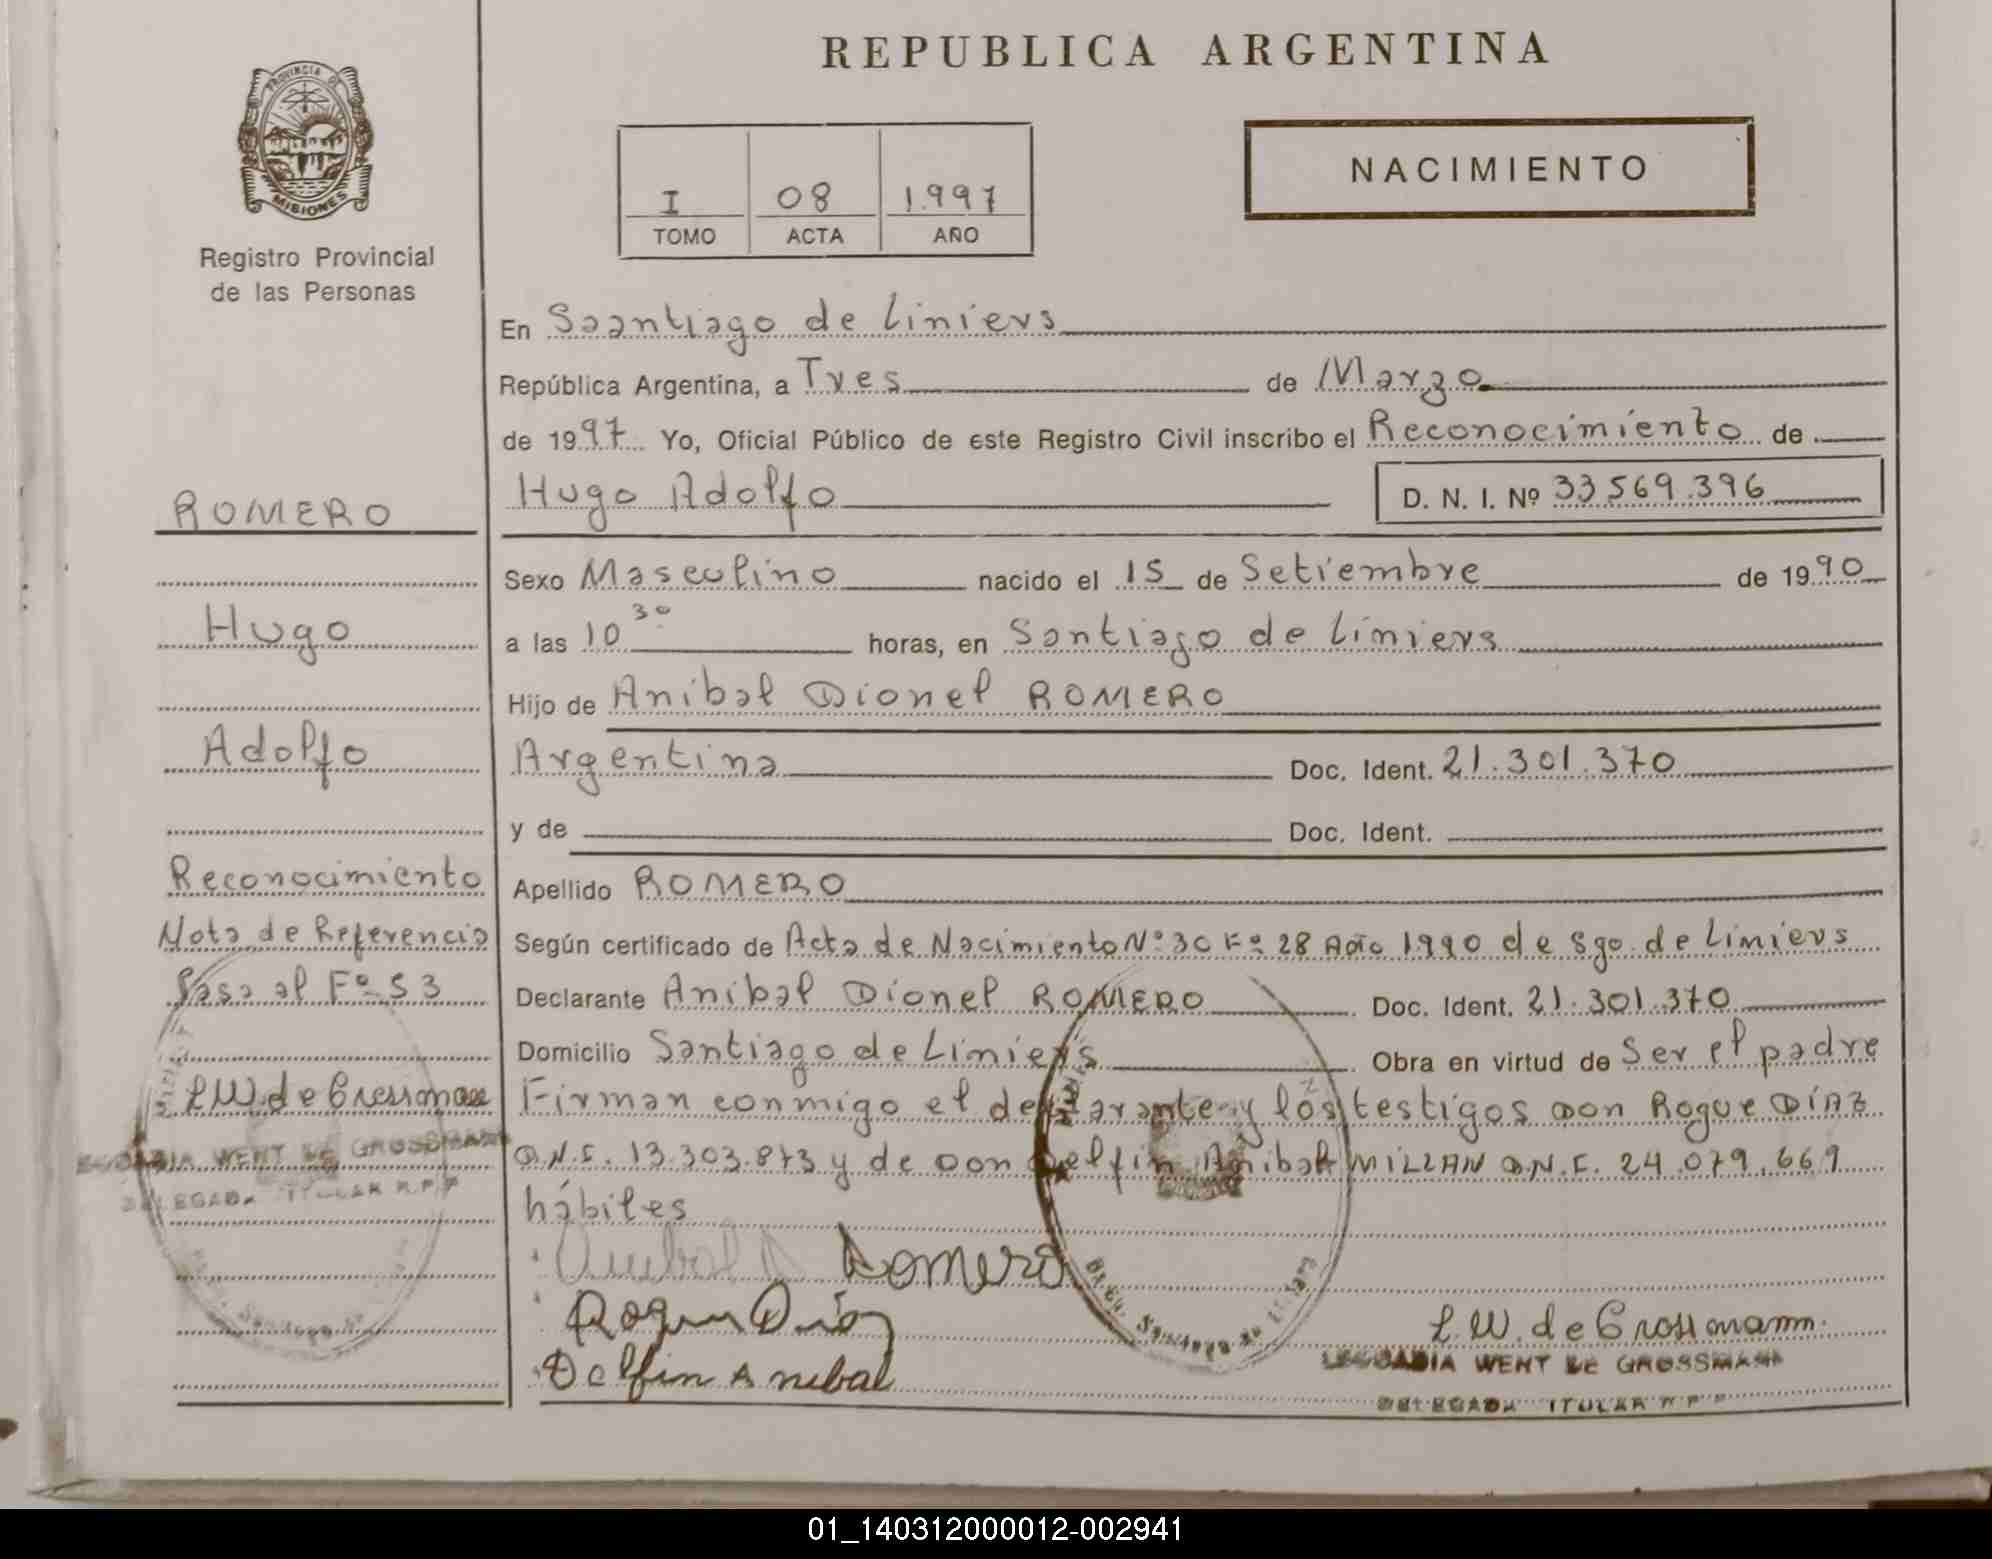 REPUBLICA ARGENTINA
PROVINCIA DE
MISIONES
Registro Provincial
de las Personas
NACIMIENTO
I 08 1.997
TOMO ACTA AÑO
En Saantiago de Liniers
República Argentina, a Tres de Marzo
de 1997 Yo, Oficial Público de este Registro Civil inscribo el Reconocimiento de
Hugo Adolfo D. N. I. Nº 33.569.396
Sexo Masculino nacido el 15 de Setiembre de 1990
a las 10 30 horas, en Santiago de Liniers
Hijo de Anibal Dionel ROMERO
Argentina Doc. Ident. 21.301.370
y de Doc. Ident.
Apellido ROMERO
Según certificado de Acta de Nacimiento Nº 30 Fº 28 Año 1990 de Sgo. de Liniers
Declarante Anibal Dionel ROMERO Doc. Ident. 21.301.370
Domicilio Santiago de Liniers Obra en virtud de Ser el padre
Firman conmigo el declarante y los testigos Don Roque DÍAZ
D.N.I. 13.303.873 y de Don Delfin Anibal MILLAN D.N.I. 24.079.669
hábiles
Anibal D Romero
Roque Díaz
Delfin Anibal
L.W. de Grossmann
LEOCADIA WENT DE GROSSMANN
DELEGADA TITULAR R.P.P
ROMERO
Hugo
Adolfo
Reconocimiento
Nota de Referencia
Pasa al Fº 53
L.W. de Grossmann
LEOCADIA WENT DE GROSSMANN
DELEGADA TITULAR R.P.P
01_140312000012-002941